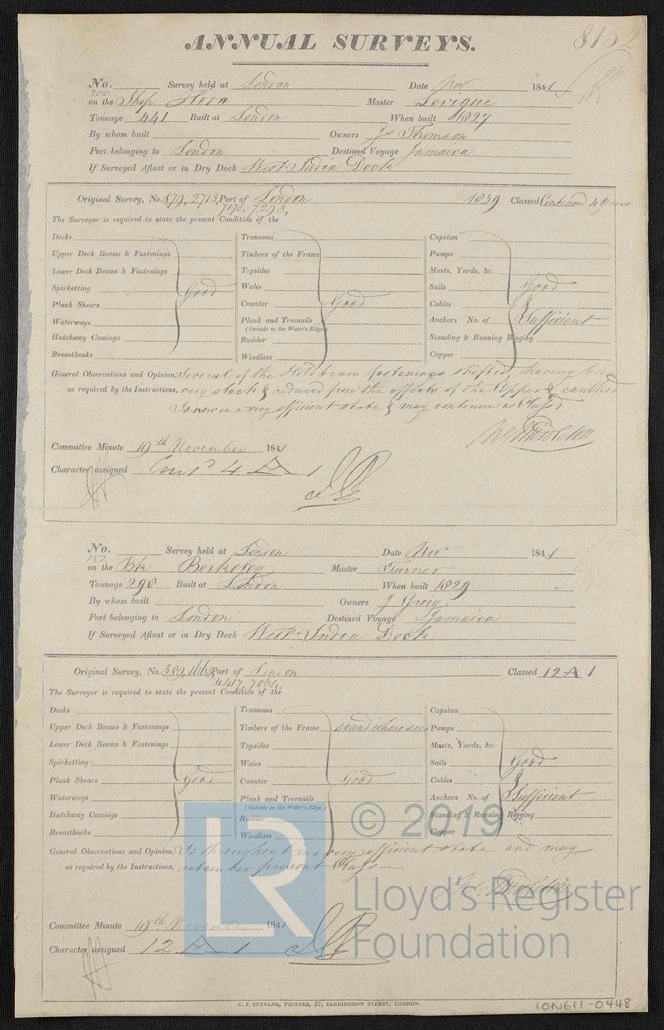 ANNUAL SURVEYS.
No. Survey held at London Date Nov 1841
on the Ship Flora Master
Tonnage 441 Built at London When built 1827
By whom built Owners Js Thomson
Port belonging to London Destined Voyage Jamaica
If Surveyed Afloat or in Dry Dock West India Dock
Original Survey, No. 879, 2713, Port of London 1839 Classed Continued 4 Years
7170, 7293,
The Surveyor is required to state the present Condition of the
Decks Transoms Capstan
Upper Deck Beams & Fastenings Timbers of the Frame Pumps
Lower Deck Beams & Fastenings Topsides Masts, Yards, &c.
Spirketting Good Wales Sails Good
Plank Shears Counter Good Cables &
Waterways Plank and Treenails Anchors No. of Sufficient
(Outside to the Water's Edge)
Hatchway Comings Rudder Standing & Running Rigging
Breasthooks Windlass Copper
General Observations and Opinion, Several of the Hold beam fastenings shifted, having been
as required by the Instructions, very slack & reduced from the effects of the Copper & caulked
Is now in a very efficient state & may continue as Class'd
Committee Minute 19th November 1841
Character assigned Cont'd 4 A 1
No. Survey held at London Date Nov 1841
152
on the Bk Berkeley Master Turner
Tonnage 298 Built at London When built 1829
By whom built Owners J Greig
Port belonging to London Destined Voyage Jamaica
If Surveyed Afloat or in Dry Dock West India Dock
Original Survey, No. 389, 1663, Port of London Classed 12 A 1
The Surveyor is required to state the present Condition of the
Decks Transoms Capstan
Upper Deck Beams & Fastenings Timbers of the Frame sound where seen Pumps
Lower Deck Beams & Fastenings Topsides Masts, Yards, &c.
Spirketting Wales Sails Good
Plank Shears Good Counter Good Cables &
Waterways Plank and Treenails Anchors No. of Sufficient
(Outside to the Water's Edge)
Hatchway Comings Rudder Standing & Running Rigging
Breasthooks Windlass Copper
General Observations and Opinion, Is throughout in a very efficient state and may
as required by the Instructions, retain her present Class
Committee Minute 19th November 1841
Character assigned 12 A 1
C. F. SEYFANG, PRINTER, 57, FARRINGDON STREET, LONDON.
ION611-0448
LR
© 2019
Lloyd's Register
Foundation